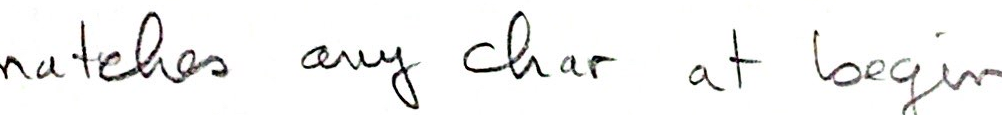 matches any char at begin